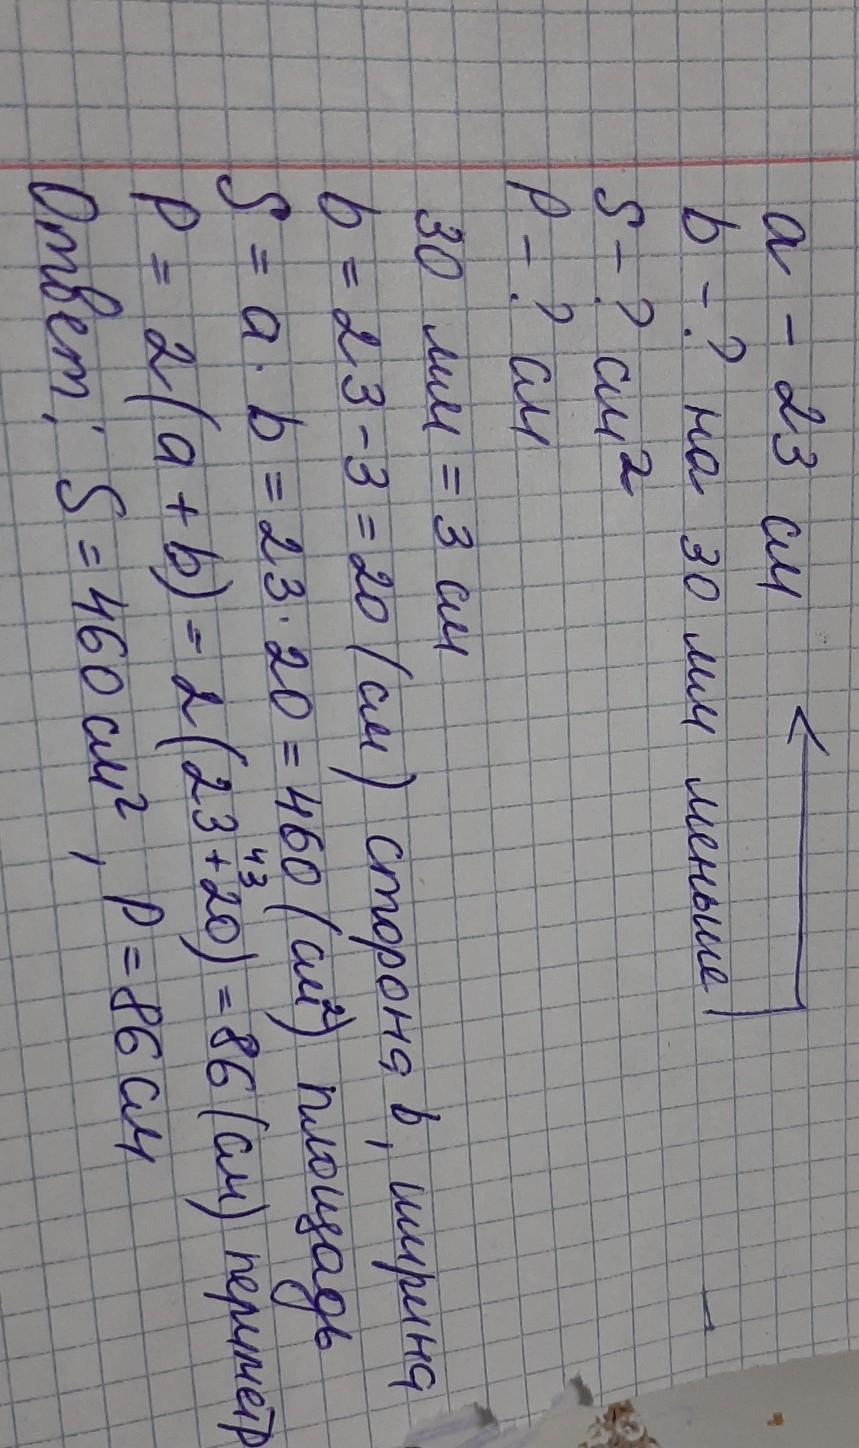 a - 23 см
b - ? на 30 мм меньше
S - ? см²
P - ? см
30 мм = 3 см
b = 23 - 3 = 20 (см) сторона b, ширина
S = a · b = 23 · 20 = 460 (см²) площадь
43
P = 2(a + b) = 2(23 + 20) = 86 (см) периметр
Ответ: S = 460 см², P = 86 см